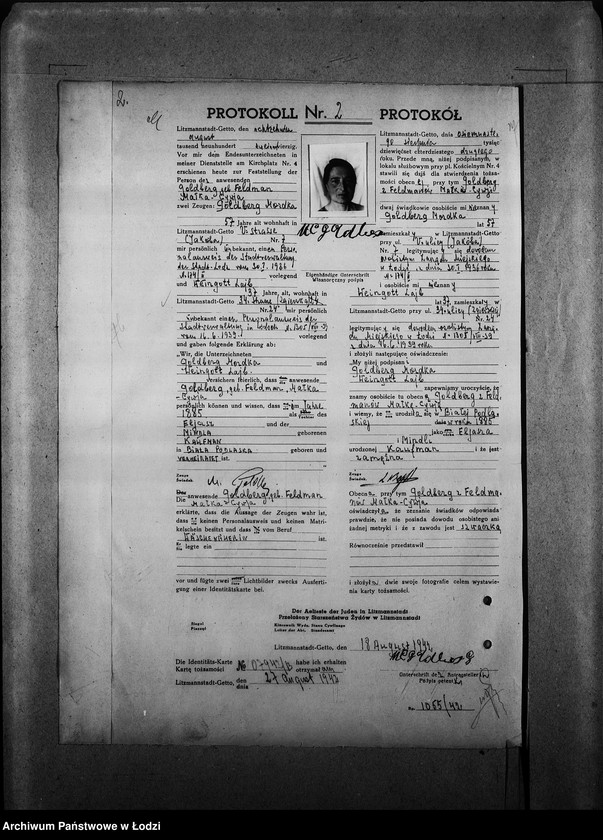 2.
PROTOKOLL Nr. 2 PROTOKÓŁ
Litzmannstadt-Getto, den achtzehnten
August
tausend neunhundert
Vor mir dem Endesunterzeichneten in
meiner Dienststelle am Kirchplatz Nr. 4
erschienen heute zur Feststellung der
Person der anwesenden
Goldberg geb. Feldman
Małka-Cywja
zwei Zeugen: Goldberg Mordka
57 Jahre alt wohnhaft in
Litzmannstadt-Getto V. Straße
(Jakoba) Nr. 7
mir persönlich bekannt, einen Perso-
nalausweis der Stadtverwaltung
der Stadt Lodz vom 30.I. 1936
vorlegend
und Weingott Lajb
37 Jahre, alt, wohnhaft in
Litzmannstadt-Getto,
Nr. 24 mir persönlich
bekannt einen Personalausweis der
Stadtverwaltung in Lodsch № 1305
vom 16.6.1939 vorlegend
und gaben folgende Erklärung ab:
„Wir, die Unterzeichneten
Goldberg Mordka und
Weingott Lajb
Versichern feierlich, dass anwesende
Goldberg, geb. Feldman, Małka-
Cywja
persönlich können und wissen, dass im Jahre
1885 als des
Eljasz und der
Mindla geborenen
Kaufman
in Biała Podlaska geboren und
verheiratet ist.
Zeuge
Świadek
Die anwesende Goldberg, geb. Feldman
Małka-Cywja
erklärte, dass die Aussage der Zeugen wahr ist,
dass keinen Personalausweis und keinen Matri-
kelschein besitzt und dass vom Beruf
Wäschenäherin ist.
legte ein
vor und fügte zwei Lichtbilder zwecks Ausferti-
gung einer Identitätskarte bei.
Eigenhändige Unterschrift
Własnoręczny podpis
Litzmannstadt-Getto, dnia osiemnaste-
go sierpnia tysiąc
dziewięćset czterdziestego drugiego
roku. Przede mną, niżej podpisanym, w
lokalu służbowym przy pl. Kościelnym Nr. 4
stawili się dziś dla stwierdzenia tożsa-
mości obecnej przy tym Goldberg
z Feldmanów Małki-Cywji
dwaj świadkowie osobiście mi znany
Goldberg Mordka
lat 57
zamieszkały w Litzmannstadt-Getto
przy ul. V ulicy (Jakoba)
Nr. 7 legitymujący się dowodem
osobistym Zarządu Miejskiego
w Łodzi z dnia 30.I.1936 roku
i osobiście mi znany
Weingott Lajb
lat 37, zamieszkały w
Litzmannstadt-Getto przy ul.
Nr. 24
legitymujący się dowodem osobistym Zarzą-
du Miejskiego w Łodzi № 1305
z dnia 16.6.1939 roku
i złożyli następujące oświadczenie:
„My niżej podpisani
Goldberg Mordka
Weingott Lajb
zapewniamy uroczyście, że
znamy osobiście tu obecną Goldberg z Feld-
manów Małkę-Cywję
i wiemy, że urodziła się w Białej Podla-
skiej dnia w roku 1885
jako Eljasza
i Mindli
urodzonej Kaufman i że jest
zamężna.
Zeuge
Świadek
Obecna przy tym Goldberg z Feldma-
nów Małka-Cywja
oświadczyła, że zeznanie świadków odpowiada
prawdzie, że nie posiada dowodu osobistego ani
żadnej metryki i że z zawodu jest szwaczką
Równocześnie przedstawił
i złożył dwie swoje fotografie celem wystawie-
nia karty tożsamości.
Der Aelteste der Juden in Litzmannstadt
Przełożony Starszeństwa Żydów w Litzmannstadt
Siegel
Pieczęć
Litzmannstadt-Getto, den 18 August 1942
Die Identitäts-Karte habe ich erhalten
Kartę tożsamości otrzymałam
Litzmannstadt-Getto, den
dnia 27 August 1942
Unterschrift des Antragsteller
Podpis petent
1055/42
Archiwum Państwowe w Łodzi